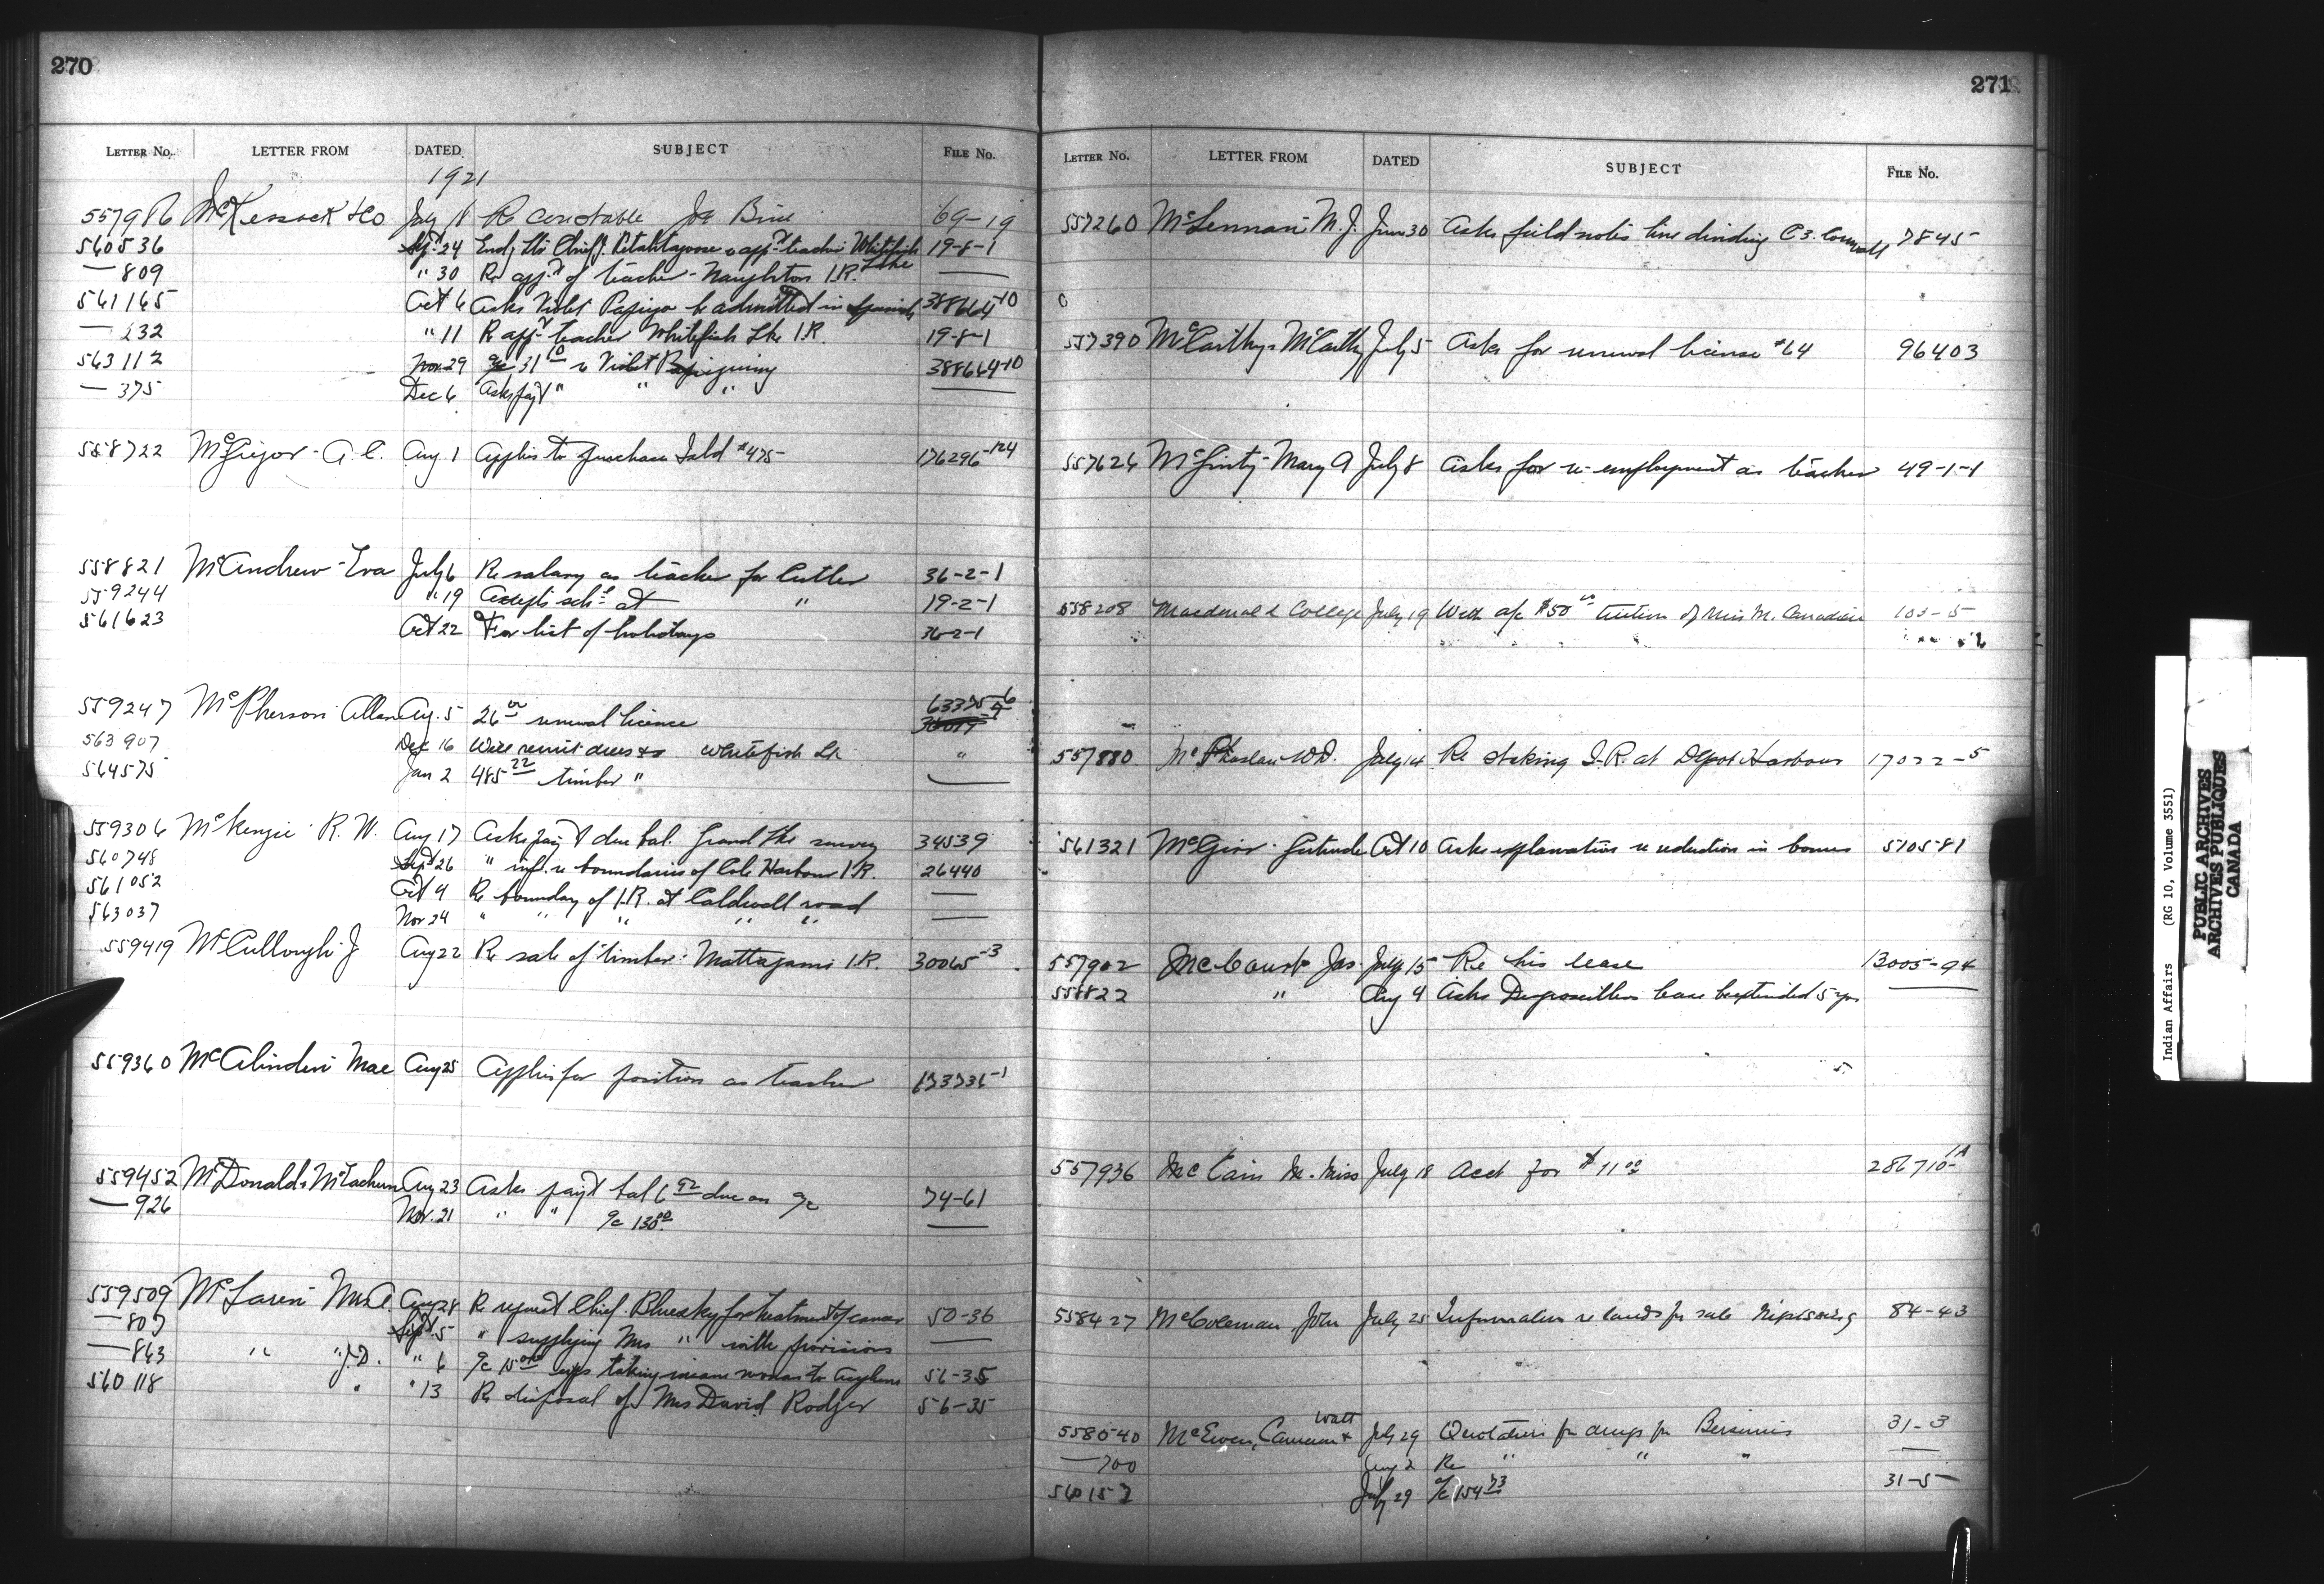 270
LETTER NO. LETTER FROM DATED SUBJECT FILE NO.
1921
557986 McKessock & Co July 18 Re constable Joe 69-19
560536 Sept 24 Chief teacher Whitefish Lake 19-8-1
— 809 " 30 Re app't of teacher - Naughton I.R. —
561165 Oct 6 Asks Violet be admitted in Spanish 388664-10
— 232 " 11 R app't teacher Whitefish Lke I.R. 19-8-1
563112 Nov 29 a/c 31 re Violet 388664-10
— 375 Dec 6 Asks pay't " " " —
558722 McGregor - A. C. Aug. 1 Applies to purchase Isld #475 176296-124
558821 McAndrew - Eva July 6 Re salary as teacher for Cutler 36-2-1
559244 " 19 Accepts sch'l at " 19-2-1
561623 Oct 22 For list of holidays 36-2-1
559247 McPherson Allan Aug. 5 26 renewal licence 63375-6
563907 Dec 16 Will remit dues Whitefish Lk "
564575 Jan 2 485 22 timber " —
559306 McKenzie R. W. Aug 17 Asks pay't due bal. Grand Lke survey 34539
560748 Sept 26 " inf. re boundaries of Cole Harbour I.R. 26440
561052 Oct 4 Re boundary of I.R. at Caldwell road —
563037 Nov 24 " " " " " —
559419 McCullough J Aug 22 Re sale of timber: Mattagami I.R. 30065-3
559360 McAlinden Mae Aug 25 Applies for position as teacher 173736-1
559452 McDonald & McLachlan Aug 23 Asks pay't bal 6 92 due on a/c 74-61
— 926 Nov. 21 " " a/c 130 00 —
559509 McLaren Mrs A. Aug 28 Re request Chief Bluesky for treatment of cancer 50-36
— 807 Sept. 5 " supplying Mrs " with provisions —
— 863 " " J.D. " 6 a/c 15 00 taking insane woman to Asylum 56-35
560118 " " 13 Re disposal of Mrs David Rodger 56-35
271
LETTER NO. LETTER FROM DATED SUBJECT FILE NO.
557260 McLennan - M. J. June 30 Asks field notes line dividing C 3. Cornwall 7845
557390 McCarthy & McCarthy July 5 Asks for renewal license #64 96403
557626 McGinty - Mary A July 8 Asks for re-employment as teacher 49-1-1
558208 Macdonald College July 19 With a/c $50 tuition of Miss M. Canadien 103-5
557880 W.D. July 14 Re staking I.R. at Depot Harbour 17022-5
561321 Gertrude Oct 10 Asks explanation re reduction in bonus 510581
557902 Jas. July 15 Re his lease 13005-94
558822 " Aug 4 Asks lease be extended 5 yrs —
557936 McCain M. Miss July 18 Acct for $11 00 286710-1A
558427 McColeman John July 25 Information re lands for sale Nipissing 84-43
558540 McEwen, Cameron & Watt July 29 Quotations for drugs for Bersimis 31-3
— 700 Aug 2 Re " " " —
560157 July 29 a/c 154 73 31-5
Indian Affairs (RG 10, Volume 3551)
PUBLIC ARCHIVES
ARCHIVES PUBLIQUES
CANADA